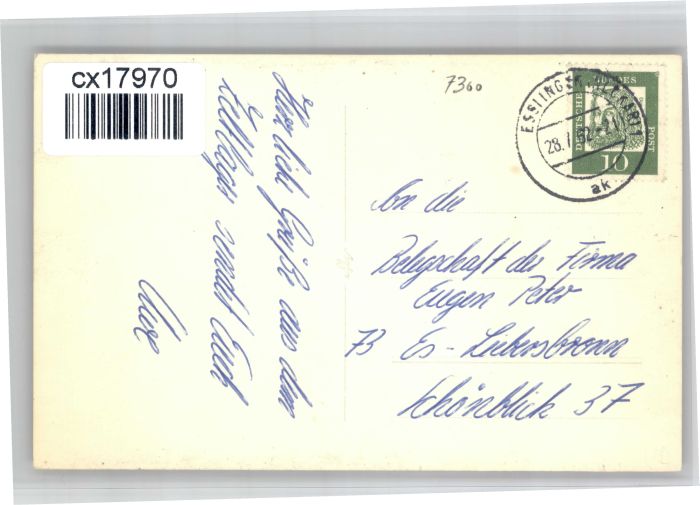 cx17970
7360
ESSLINGEN
28.
ak
DEUTSCHE BUNDES POST
10
Herzliche Grüße aus dem
Zeltlager sendet Euch
Uwe
An die
Belegschaft der Firma
Eugen Peter
73 Es - Liebersbronn
Schönblick 37